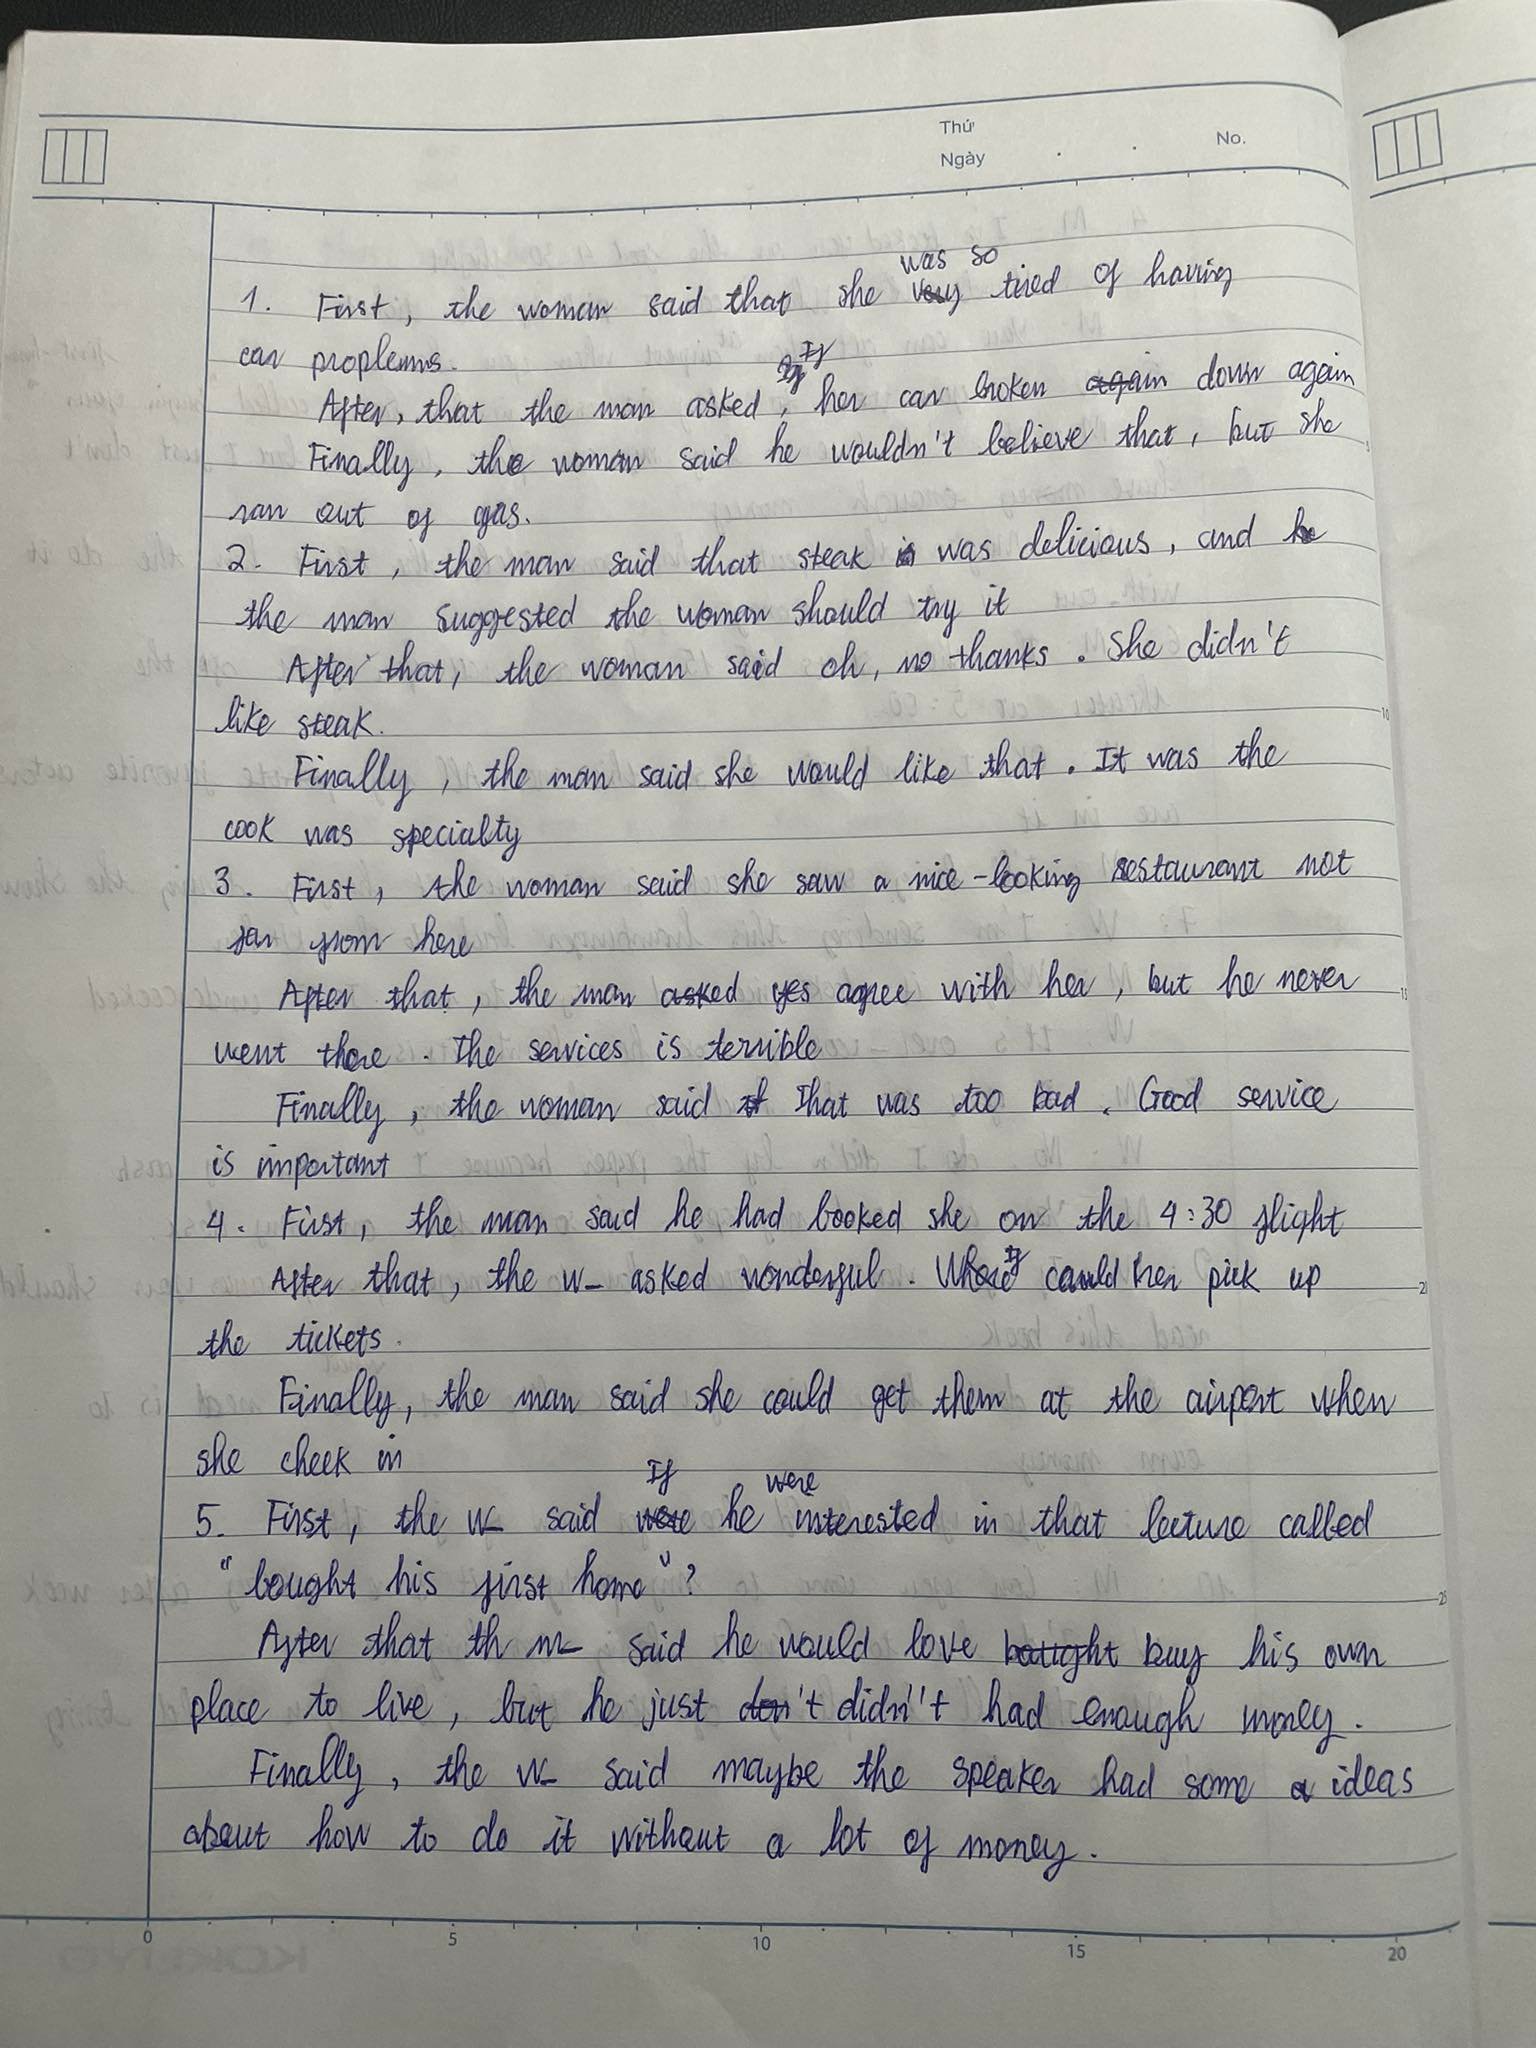 Thứ
Ngày
No.
was so
1. First, the woman said that she very tired of having
car proplems.
If
After, that the man asked, her car broken again down again
Finally, the woman said he wouldn't believe that, but she
ran out of gas.
2. First, the man said that steak is was delicious, and he
the man suggested the woman should try it
After that, the woman said oh, no thanks. She didn't
like steak.
Finally, the man said she would like that. It was the
cook was specialty
3. First, the woman said she saw a nice-looking restaurant not
far from here
After that, the man asked yes agree with her, but he never
went there. The services is terrible
Finally, the woman said That was too bad. Good service
is important
4. First, the man said he had booked she on the 4:30 flight
After that, the W_ asked wonderful. Where if could her pick up
the tickets.
Finally, the man said she could get them at the airport when
she check in
If were
5. First, the W_ said were he interested in that lecture called
"bought his first home"?
After that th m_ said he would love bought buy his own
place to live, but he just don't didn't had enough money.
Finally, the W_ said maybe the speaker had some a ideas
about how to do it without a lot of money.
0 5 10 15 20